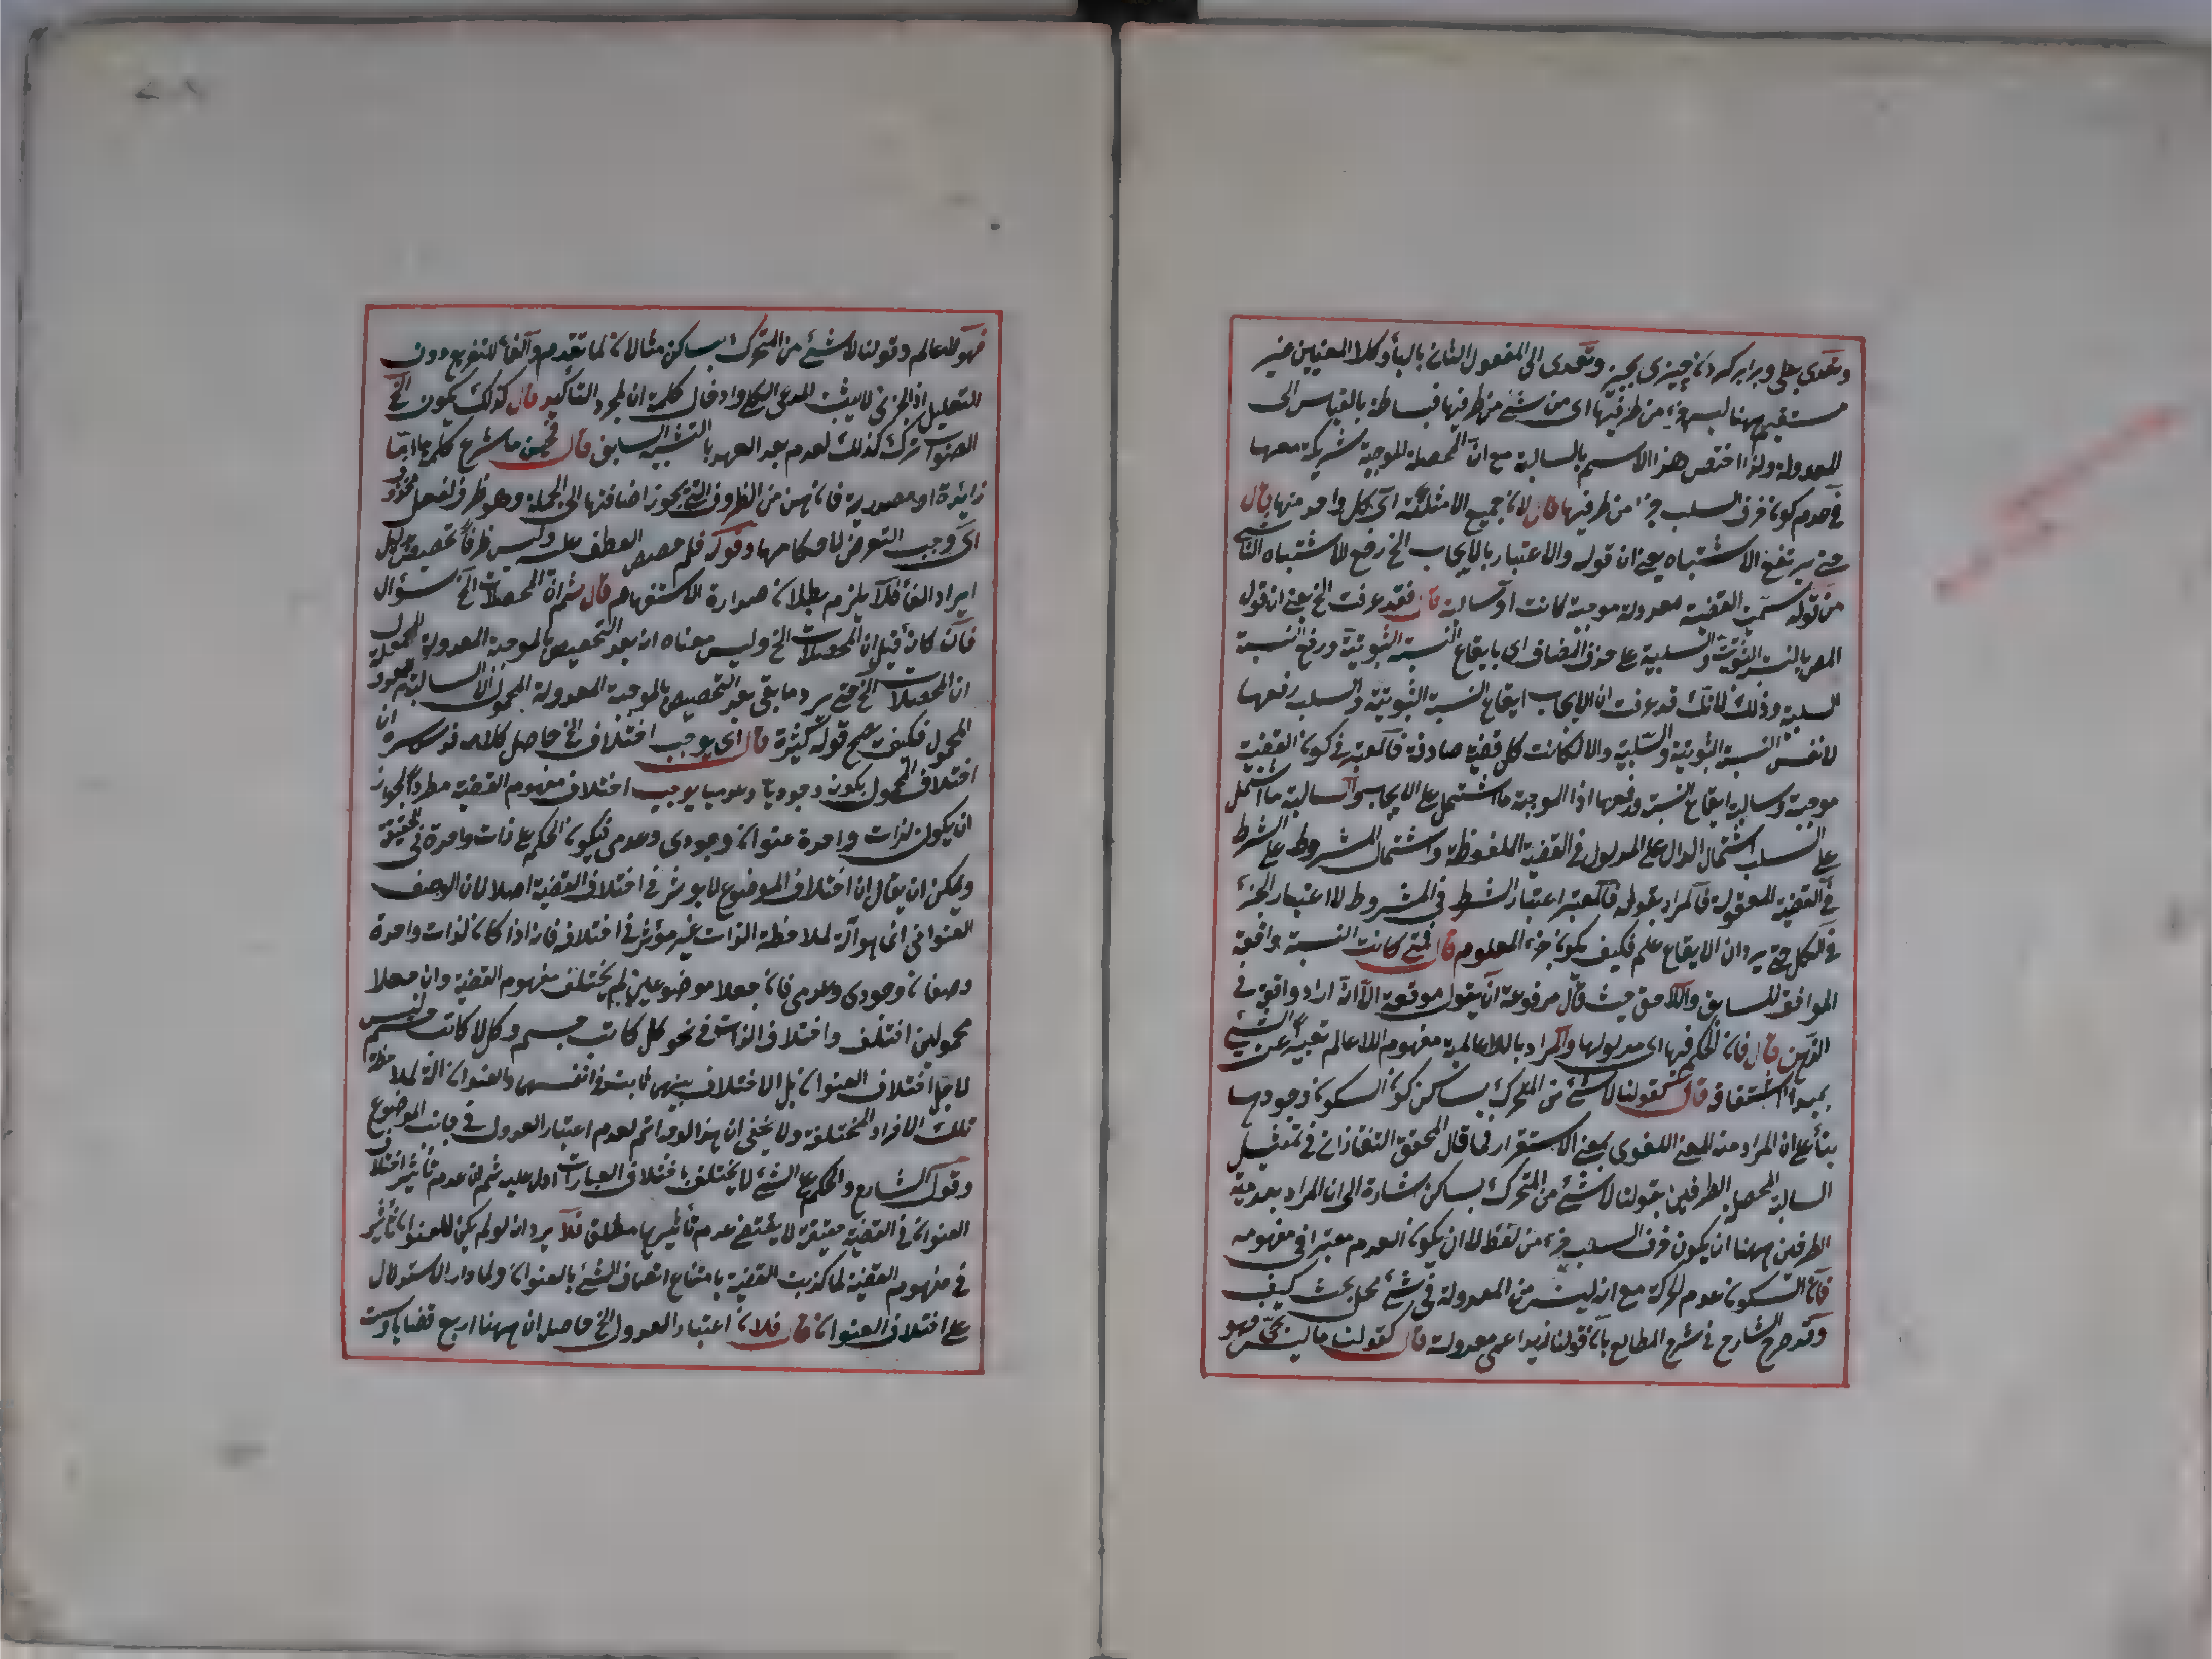 وتعدى بعلى وبرابر كردن چيزى بچيز وتعدى الى المفعول الثانى بالباء وكلا المعنيين غير
مستقيم ههنا ليس جزء من طرفيها اى من شئ من طرفيها فبساطة بالقياس الى
المعدولة ولذا اختص هذا الاسم بالسالبة مع ان المحصلة الموجبة شريكة معها
فى عدم كون حرف السلب جزء من طرفيها قال لان جميع الامثلة اى كل واحد منها قال
حتى يرتفع الاشتباه يعنى ان قوله والاعتبار بالايجاب الخ رفع للاشتباه الناشى
من قوله سميت القضية معدولة موجبة كانت او سالبة قال فقد عرفت الخ يعنى ان قول
المص بالنسبة الثبوتية والسلبية على حذف المضاف اى بايقاع النسبة الثبوتية ورفع النسبة
السلبية وذلك لانك قد عرفت ان الايجاب ايقاع النسبة الثبوتية والسلب رفعها
لا نفس النسبة الثبوتية والسلبية والا لكانت كل قضية صادقة فالمعتبر فى كون القضية
موجبة وسالبة ايقاع النسبة ورفعها اذ الموجبة ما اشتمل على الايجاب والسالبة ما اشتمل
على السلب اشتمال الدال على المدلول فى القضية الملفوظة واشتمال المشروط على الشرط
فى القضية المعقولة فالمراد بقوله فالمعتبر اعتبار الشرط فى المشروط لا اعتبار الجزء
فى الكل حتى يرد ان الايقاع علم فكيف يكون جزء المعلوم قال فمتى كانت النسبة واقعة
الموافق للسابق واللاحق حيث قال مرفوعة ان يقول موقعة الا انه اراد واقعة فى
الذهن قال فان الحكم فيها اى مدلولها والمراد باللاعالمية مفهوم اللاعالم تعبيرا عن الشئ
بمبدأ اشتقاقه قال كقولنا لا شئ من المتحرك بساكن كون السكون وجوديا
بناء على ان المراد منه المعنى اللغوى بمعنى الاستقرار فما قال المحقق التفتازانى فى تمثيل
السالبة المحصل الطرفين بقولنا لا شئ من المتحرك بساكن اشارة الى ان المراد بعدمية
الطرفين ههنا ان يكون حرف السلب جزء من لفظه لا ان يكون العدم معتبرا فى مفهومه
فان السكون عدم الحركة مع انه ليس من المعدولة فى شئ محل بحث كيف
وقد صرح الشارح فى شرح المطالع بان قولنا زيد اعمى معدولة قال كقولنا ما ليس بحى فهو
فهو لا عالم وقولنا لا شئ من المتحرك بساكن مثالان لما تقدم والفاء للتفريع دون
التعليل اذ الجزئى لا يثبت المدعى الكلى وادخال كلمة ان لمجرد التأكيد قال كذلك يكون الخ
الصواب ترك كذلك لعدم بعد العهد بالتشبيه السابق قال فحين ما شرع كلمة ما اما
زائدة او مصدرية فان حين من الظروف التى يجوز اضافتها الى الجملة وهو ظرف لفعل محذوف
اى وجب التعرض لاحكامها وقوله فلم خصص العطف عليه وليس ظرفا لخصص بدليل
ايراد الفاء فلا يلزم بطلان صدارة الاستفهام قال ثم ان المحصلات الخ سؤال
فان كان قيل ان المحصلات الخ وليس معناه انه بعد التخصيص بالموجبة المعدولة المحمول
ان المحصلات الخ حتى يرد ما بقى بعد التخصيص بالموجبة المعدولة المحمول الا السالبة
المحمول فكيف صح قوله كثيرة قال اى يوجب اختلاف الخ حاصل كلامه قدس سره ان
اختلاف المحمول بكونه وجوديا وعدميا يوجب اختلاف مفهوم القضية مطردا لجواز
ان يكون لذات واحدة عنوان وجودى وعدمى فيكون الحكم على ذات واحدة فى الحقيقة
ويمكن ان يقال ان اختلاف الموضوع لا يؤثر فى اختلاف القضية اصلا لان الوصف
العنوانى انما هو آلة لملاحظة الذات غير مؤثر فى اختلافه فانه اذا كان لذات واحدة
وصفان وجودى وعدمى فان جعلا موضوعين لم يختلف مفهوم القضية وان جعلا
محمولين اختلف واختلاف الذات فى نحو كل كاتب جسم وكل لا كاتب جسم ليس
لاجل اختلاف العنوان بل الاختلاف بينهما ثابت فى انفسهما والعنوان آلة لملاحظة
تلك الافراد المختلفة ولا يخفى ان هذا لو تم لعدم اعتبار العدول فى جانب الموضوع
وقول الشارح والحكم على الشئ لا يختلف باختلاف العبارات ادل عليه ثم ان عدم تأثير اختلاف
العنوان فى القضية حقيقة لا يقتضى عدم تأثيرها مطلقا فلا يرد انه لو لم يكن للعنوان تأثير
فى مفهوم القضية لما كذبت القضية بامتناع اتصاف الشئ بالعنوان ولما دار الاستدلال
على اختلاف العنوان قال فلان اعتبار العدول الخ حاصله ان ههنا اربع قضايا